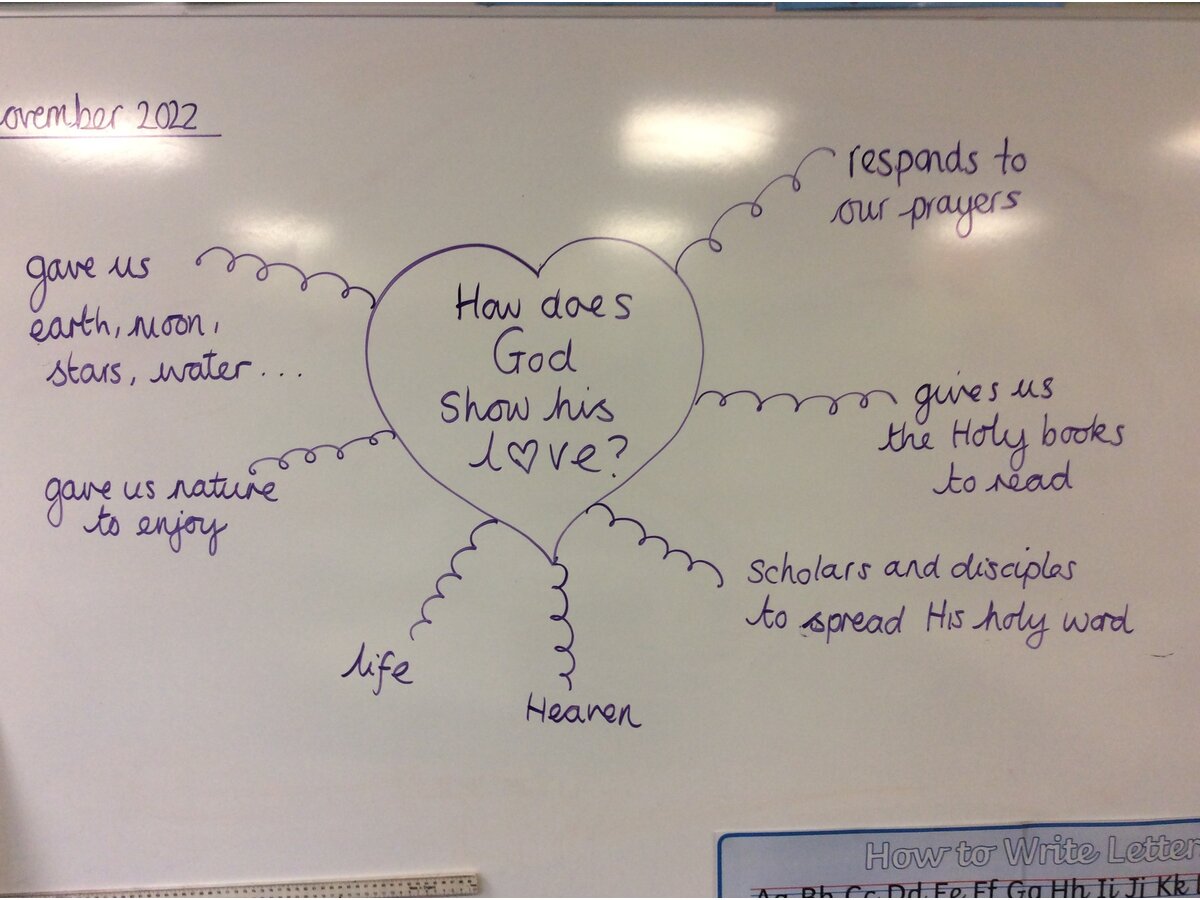 ovember 2022
How does
God
Show his
l♡ve?
responds to
our prayers
gives us
the Holy books
to read
Scholars and disciples
to spread His holy word
Heaven
life
gave us nature
to enjoy
gave us
earth, moon,
stars, water...
How to Write Letter
Aa Bb Cc Dd Ee Ff Gg Hh Ii Jj Kk